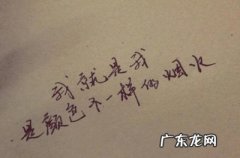 我就是我
是颜色不一样的烟火
广东龙网